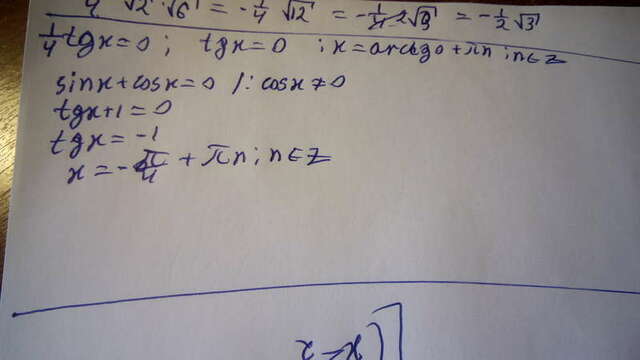 4 √2 · √6 = -1/4 √12 = -1/4 · 2√3 = -1/2 √3
1/4 tgx = 0 ; tgx = 0 ; x = arctg0 + πn ; n∈Z
sinx + cosx = 0 /: cosx ≠ 0
tgx + 1 = 0
tgx = -1
x = -π/4 + πn ; n∈Z
(x-2